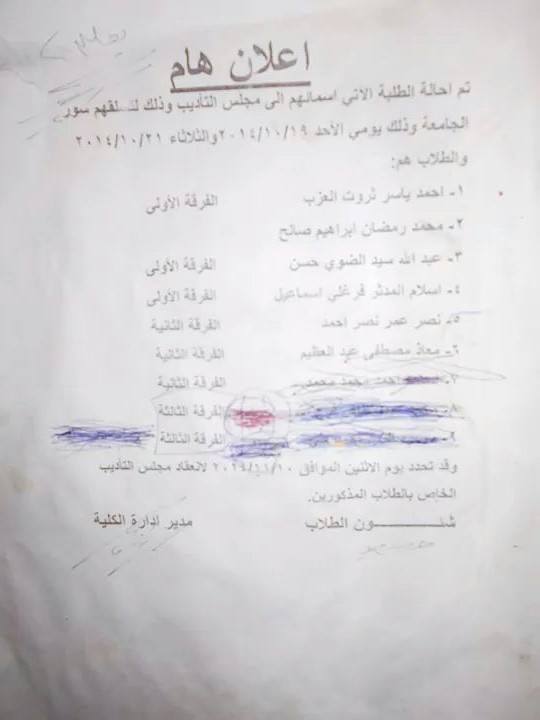 اعلان هام
تم احالة الطلبة الاتي اسمائهم الى مجلس التأديب وذلك لتسلقهم سور
الجامعة وذلك يومي الأحد ٢٠١٤/١٠/١٩ والثلاثاء ٢٠١٤/١٠/٢١
والطلاب هم:
١- احمد ياسر ثروت العزب الفرقة الأولى
٢- محمد رمضان ابراهيم صالح
٣- عبد الله سيد الضوي حسن الفرقة الأولى
٤- اسلام المدثر فرغلي اسماعيل الفرقة الأولى
٥- نصر عمر نصر احمد الفرقة الثانية
٦- معاذ مصطفى عبد العظيم الفرقة الثانية
٧- احمد محمد الفرقة الثانية
٨- الفرقة الثالثة
٩- الفرقة الثالثة
وقد تحدد يوم الاثنين الموافق ٢٠١٤/١١/١٠ لانعقاد مجلس التأديب
الخاص بالطلاب المذكورين.
شئـــــــــون الطلاب مدير ادارة الكلية